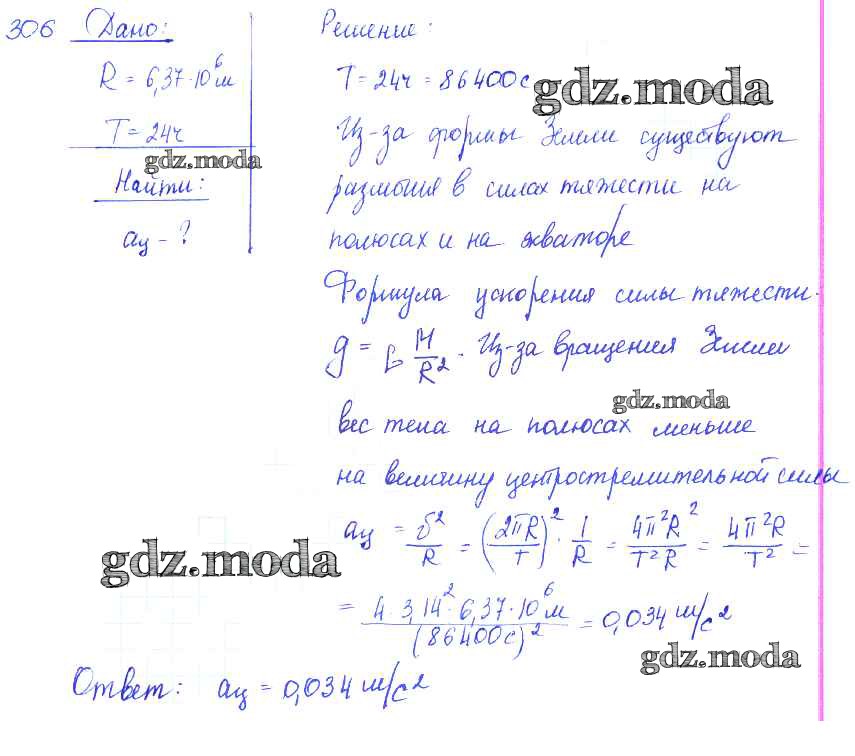 306 Дано:
R = 6,37·10⁶ м
T = 24ч
gdz.moda
Найти:
aц - ?
Решение:
T = 24ч = 86400с
gdz.moda
Из-за формы Земли существуют
различия в силах тяжести на
полюсах и на экваторе
Формула ускорения силы тяжести.
g = G M/R². Из-за вращения Земли
gdz.moda
вес тела на полюсах меньше
на величину центростремительной силы
aц = v²/R = (2πR/T)² · 1/R = 4π²R²/T²R = 4π²R/T² =
gdz.moda
= 4·3,14²·6,37·10⁶м/(86400с)² = 0,034 м/с²
gdz.moda
Ответ: aц = 0,034 м/с²